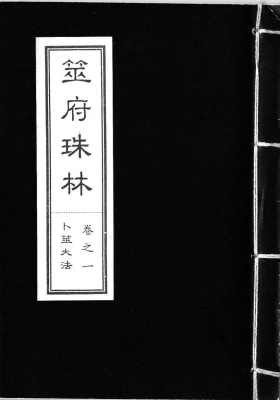 筮府珠林
卷之一
卜筮大法